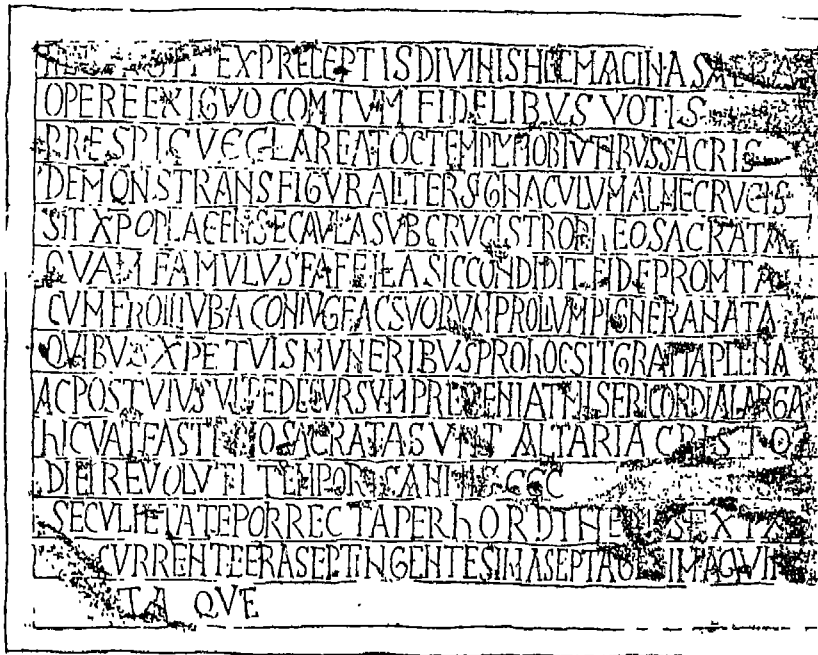 EX PRECEPTIS DIVINIS HEC MACINA SACRA
OPERE EXIGVO COMTVM FIDELIBVS VOTIS
PRESPICVE CLAREAT OC TEMPLVM OBTVTIBVS SACRIS
DEMONSTRANS FIGVRALITER SIGNACVLVM ALME CRVCIS
SIT XPO PLACENS EC AVLA SVB CRVCIS TROPhEO SACRATA
QVAM FAMVLVS FAFEILA SIC CONDIDIT FIDE PROMTA
CVM FROILIVBA CONIVGE AC SVORVM PROLIVM PIGNERA NATA
QVIBVS XPE TVIS MVNERIBVS PRO hOC SIT GRATIA PLENA
AC POST VIVS VITE DECVRSVM PREVENIAT MISERICORDIA LARGA
hIC VATE SACRATA SVNT ALTARIA CRISTO
DIEI REVOLVTI TEMPORIS ANNIS CCC
SECVLI ETATE PORRECTA PER hORDINEM SEXTA
CVRRENTE ERA SEPTINGENTESIMA SEPTAGESIMA QVIN
TA QVE